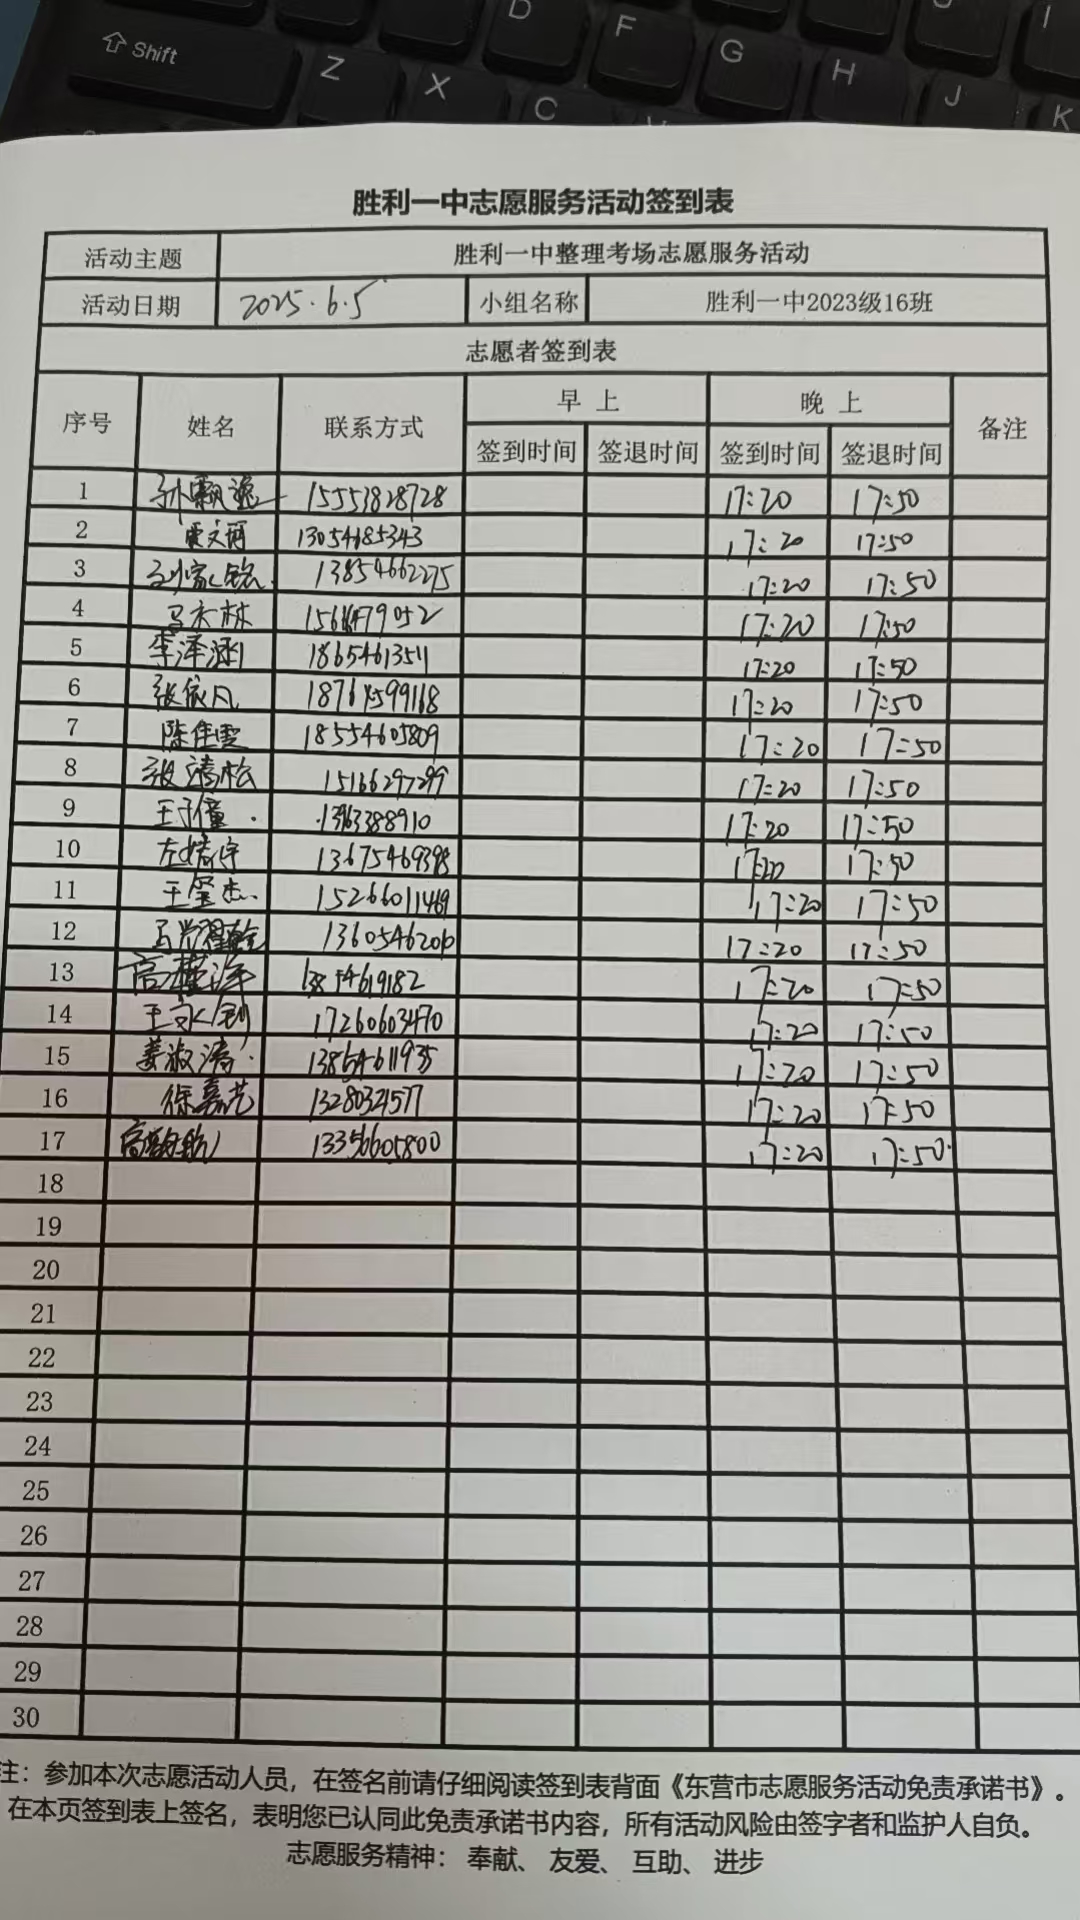 Shift
D
F
G
H
J
I
Z
X
C
V
K
胜利一中志愿服务活动签到表
活动主题 胜利一中整理考场志愿服务活动
活动日期 2025.6.5 小组名称 胜利一中2023级16班
志愿者签到表
序号 姓名 联系方式 早上 晚上 备注
签到时间 签退时间 签到时间 签退时间
1 15553828728 17:20 17:50
2 13054685343 17:20 17:50
3 13854662275 17:20 17:50
4 17:20 17:50
5 李泽涵 18654613511 17:20 17:50
6 张依凡 17:20 17:50
7 陈佳雯 18554605809 17:20 17:50
8 张清松 15166297299 17:20 17:50
9 17:20 17:50
10 13675469398 17:20 17:50
11 王玺杰 15266011469 17:20 17:50
12 17:20 17:50
13 17:20 17:50
14 17260603470 17:20 17:50
15 姜淑涛 13864611935 17:20 17:50
16 徐嘉艺 17:20 17:50
17 13356605800 17:20 17:50
18
19
20
21
22
23
24
25
26
27
28
29
30
注：参加本次志愿活动人员，在签名前请仔细阅读签到表背面《东营市志愿服务活动免责承诺书》。
在本页签到表上签名，表明您已认同此免责承诺书内容，所有活动风险由签字者和监护人自负。
志愿服务精神：奉献、友爱、互助、进步